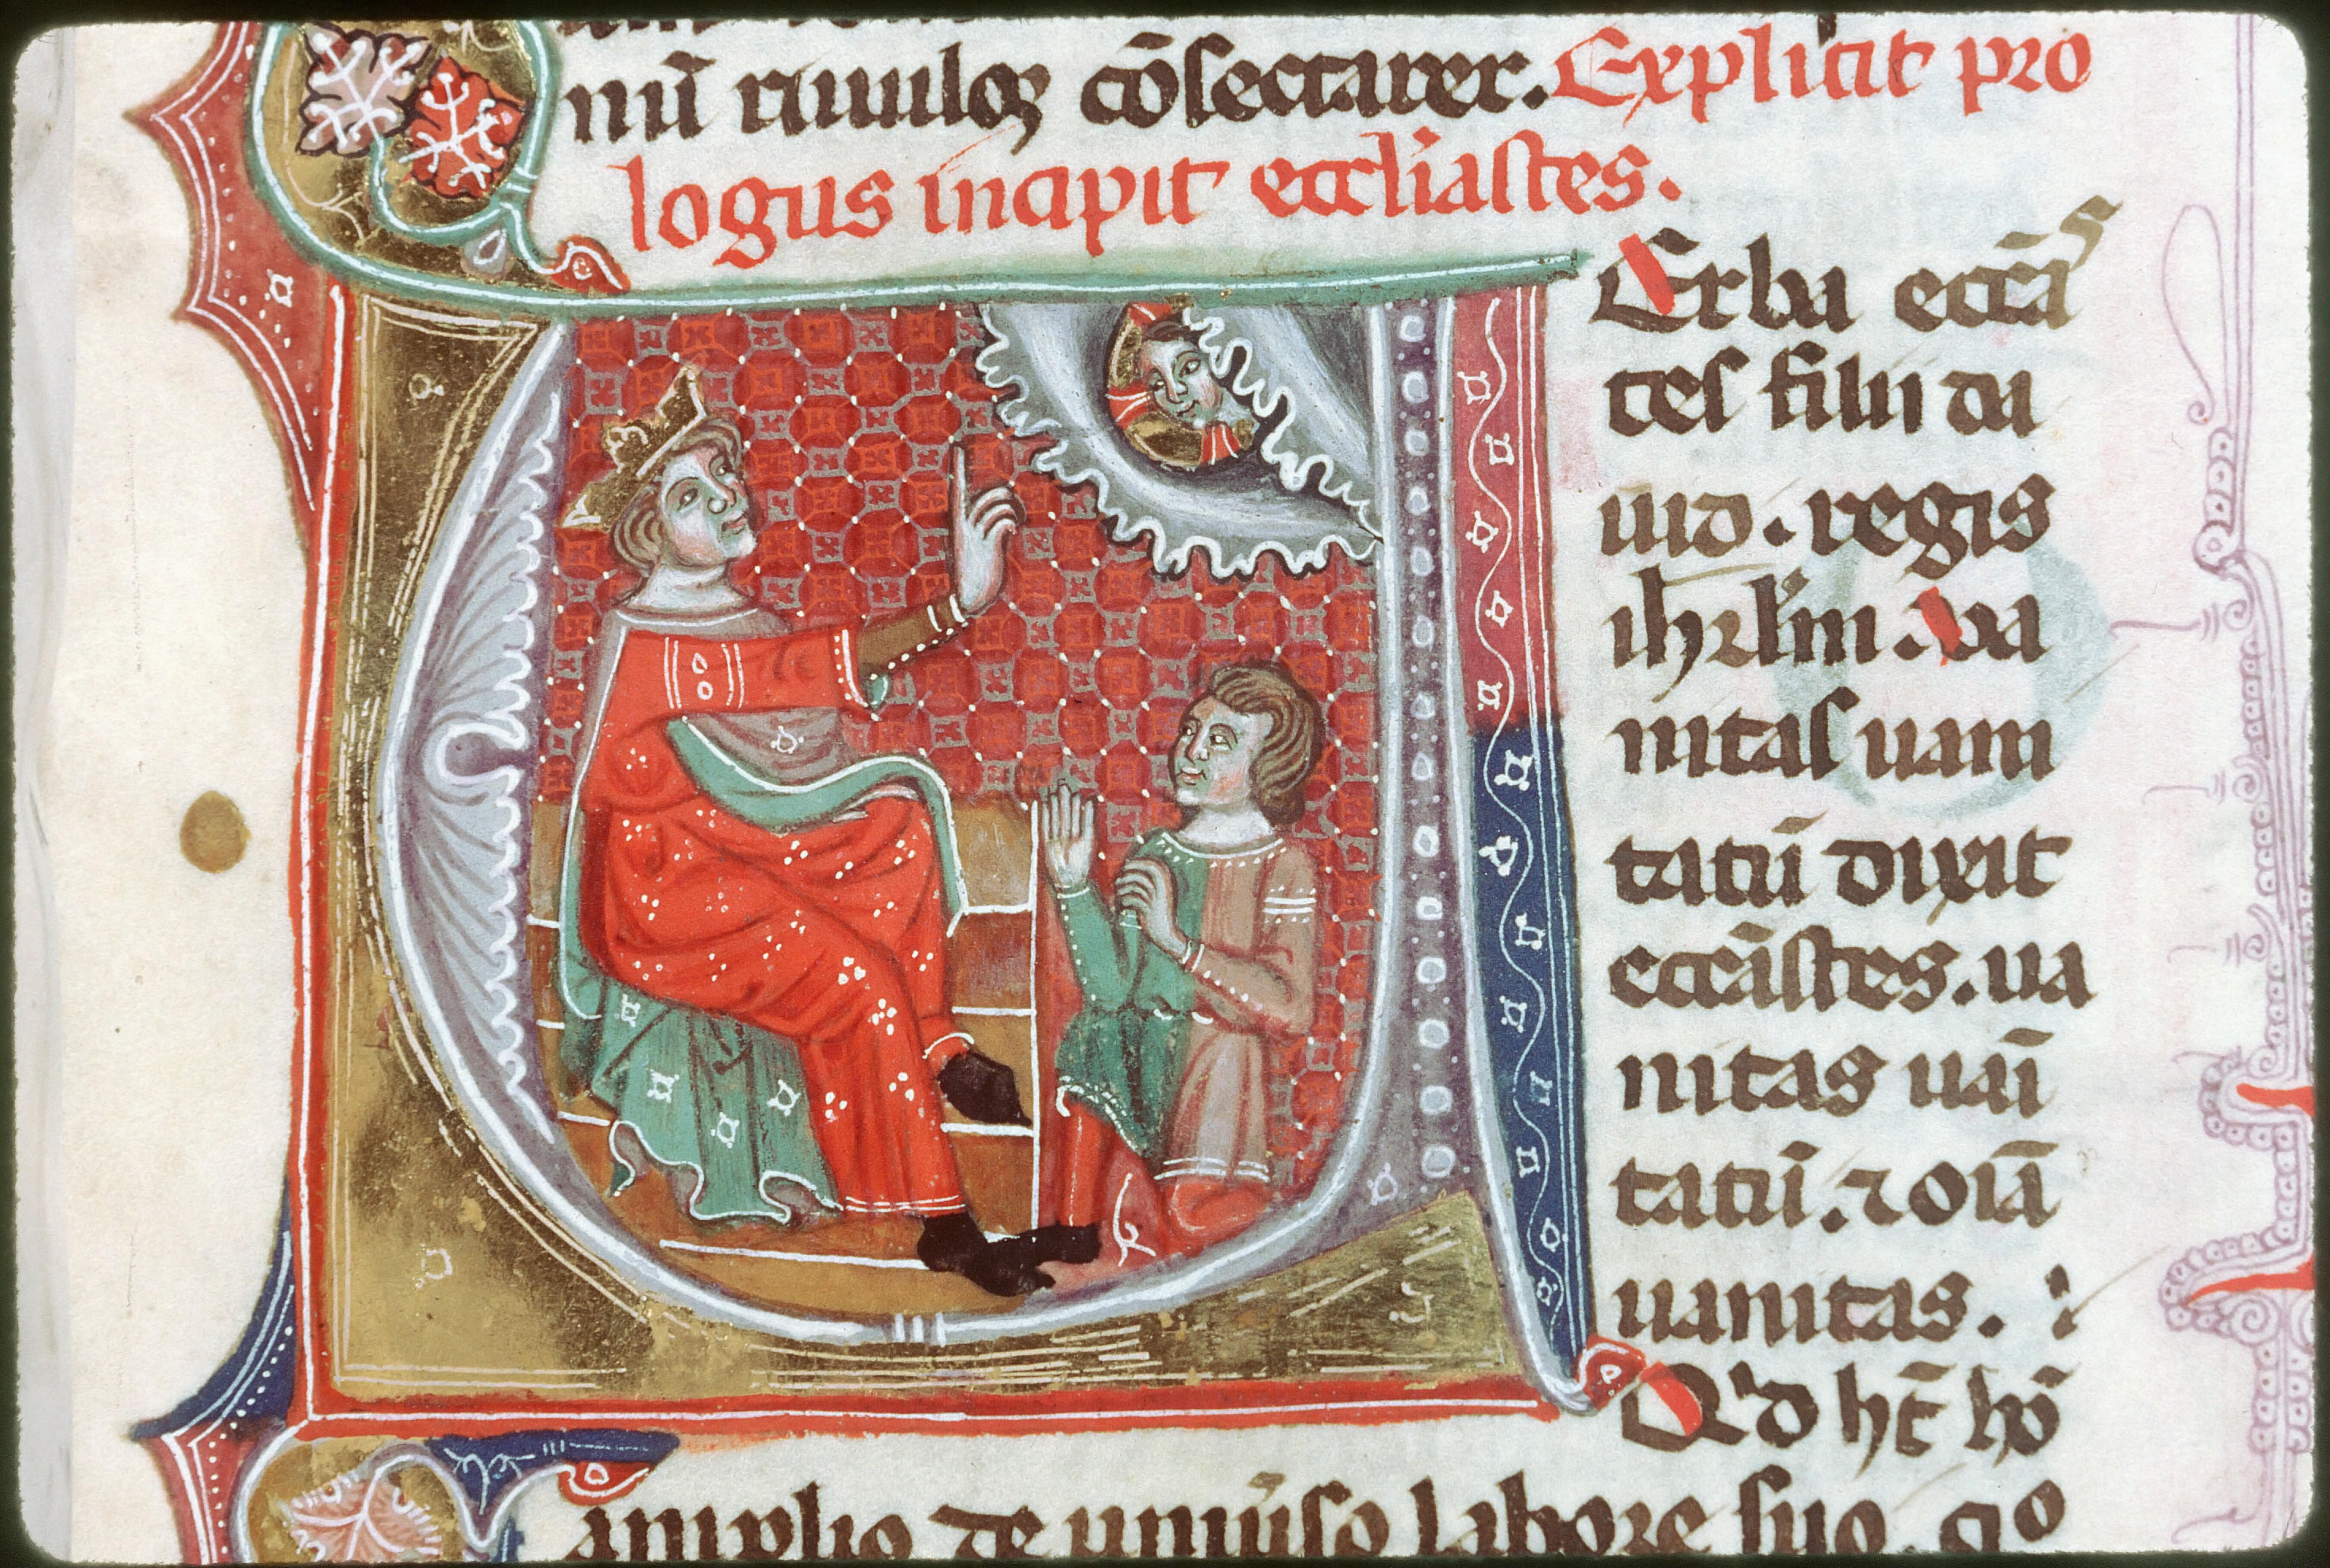 nū riuulos cōsectarer. Explicit pro
logus incipit eccliastes.
Erba eccās
tes filii da
uid. regis
ihrl'm. Va
nitas uani
tatū dixit
eccāstes. ua
nitas uāi
tatū. ⁊ oīa
uanitas.
Q'd hт̄ hō
amplio de uniūso labore suo. qo